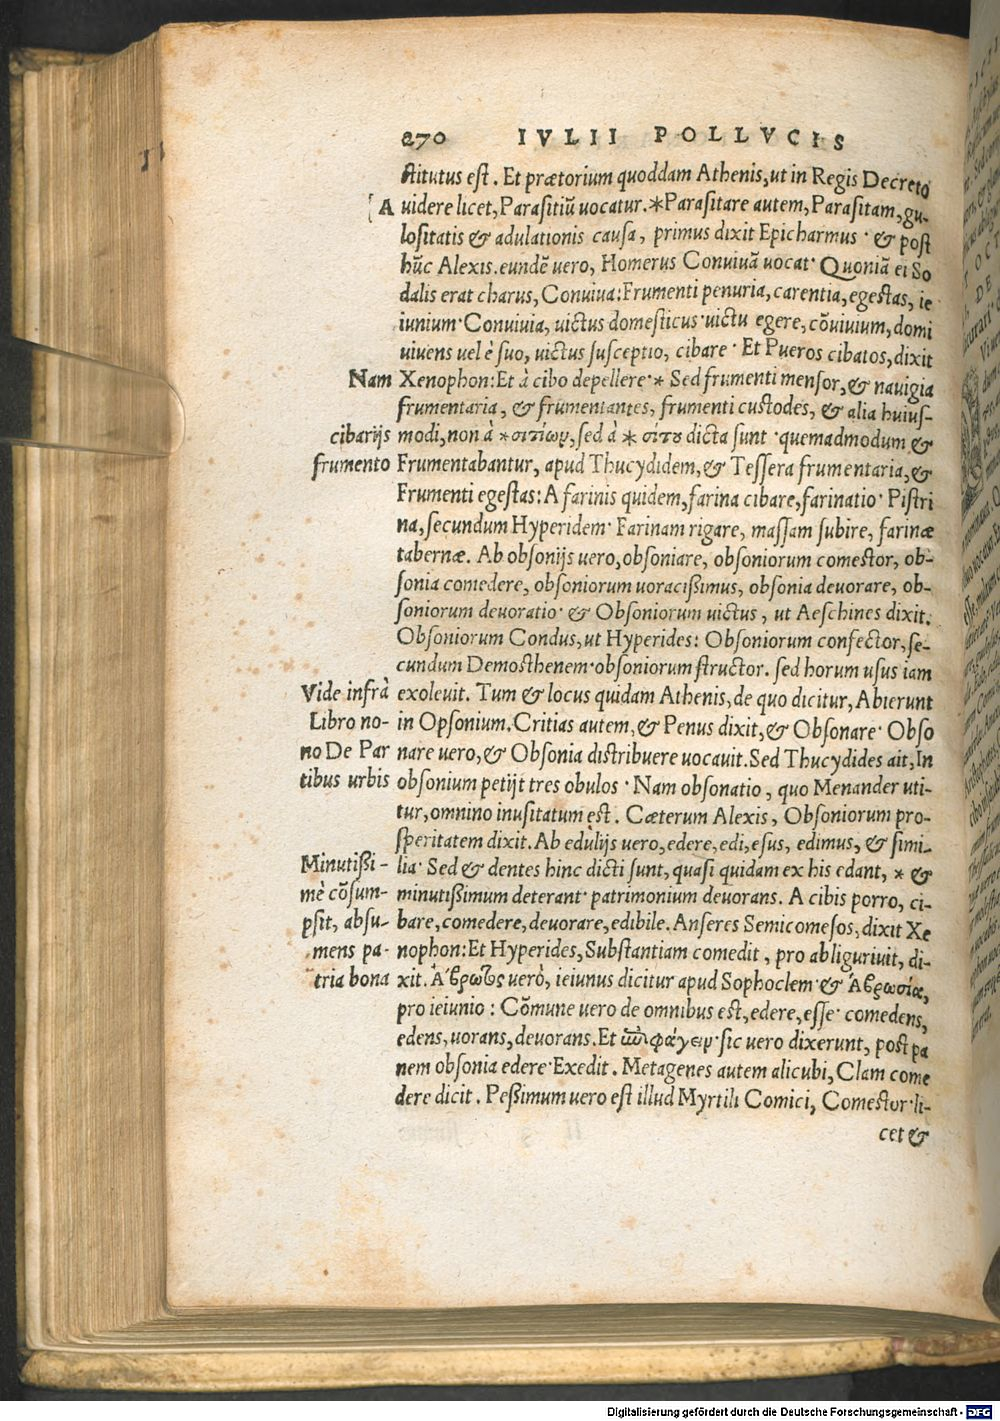 270 IVLII POLLVCIS
stitutus est. Et prætorium quoddam Athenis, ut in Regis Decreto
A uidere licet, Parasitiũ uocatur. *Parasitare autem, Parasitam, gu-
lositatis & adulationis causa, primus dixit Epicharmus· & post
hũc Alexis. eundẽ uero, Homerus Conuiuã uocat· Quoniã ei So
dalis erat charus, Conuiua: Frumenti penuria, carentia, egestas, ie
iunium· Conuiuia, uictus domesticus· uictu egere, cõuiuium, domi
uiuens uel è suo, uictus susceptio, cibare· Et Pueros cibatos, dixit
Nam Xenophon: Et à cibo depellere· * Sed frumenti mensor, & nauigia
frumentaria, & frumentantes, frumenti custodes, & alia huius-
cibarijs modi, non à *σιτίωμ, sed à * σίτου dicta sunt· quemadmodum &
frumento Frumentabantur, apud Thucydidem, & Tessera frumentaria, &
Frumenti egestas: A farinis quidem, farina cibare, farinatio· Pistri
na, secundum Hyperidem· Farinam rigare, massam subire, farinæ
tabernæ. Ab obsonijs uero, obsoniare, obsoniorum comestor, ob-
sonia comedere, obsoniorum uoracißimus, obsonia deuorare, ob-
soniorum deuoratio· & Obsoniorum uictus, ut Aeschines dixit.
Obsoniorum Condus, ut Hyperides: Obsoniorum confector, se-
cundum Demosthenem· obsoniorum structor. sed horum usus iam
Vide infrà exoleuit. Tum & locus quidam Athenis, de quo dicitur, Abierunt
Libro no- in Opsonium. Critias autem, & Penus dixit, & Obsonare· Obso
no De Par nare uero, & Obsonia distribuere uocauit. Sed Thucydides ait, In
tibus urbis obsonium petijt tres obulos· Nam obsonatio, quo Menander uti-
tur, omnino inusitatum est. Cæterum Alexis, Obsoniorum pro-
speritatem dixit. Ab edulijs uero, edere, edi, esus, edimus, & simi-
Minutißi- lia· Sed & dentes hinc dicti sunt, quasi quidam ex his edant, * &
mè cõsum- minutißimum deterant· patrimonium deuorans. A cibis porro, ci-
psit, absu- bare, comedere, deuorare, edibile. Anseres Semicomesos, dixit Xe
mens pa- nophon: Et Hyperides, Substantiam comedit, pro abliguriuit, di-
tria bona xit. Ἄβρωτος uerò, ieiunus dicitur apud Sophoclem· & Ἀβρωσία,
pro ieiunio: Cõmune uero de omnibus est, edere, esse· comedens,
edens, uorans, deuorans. Et φάγειμ· sic uero dixerunt, post pa
nem obsonia edere· Exedit. Metagenes autem alicubi, Clam come
dere dicit. Peßimum uero est illud Myrtili Comici, Comestor· li-
cet &
Digitalisierung gefördert durch die Deutsche Forschungsgemeinschaft - DFG